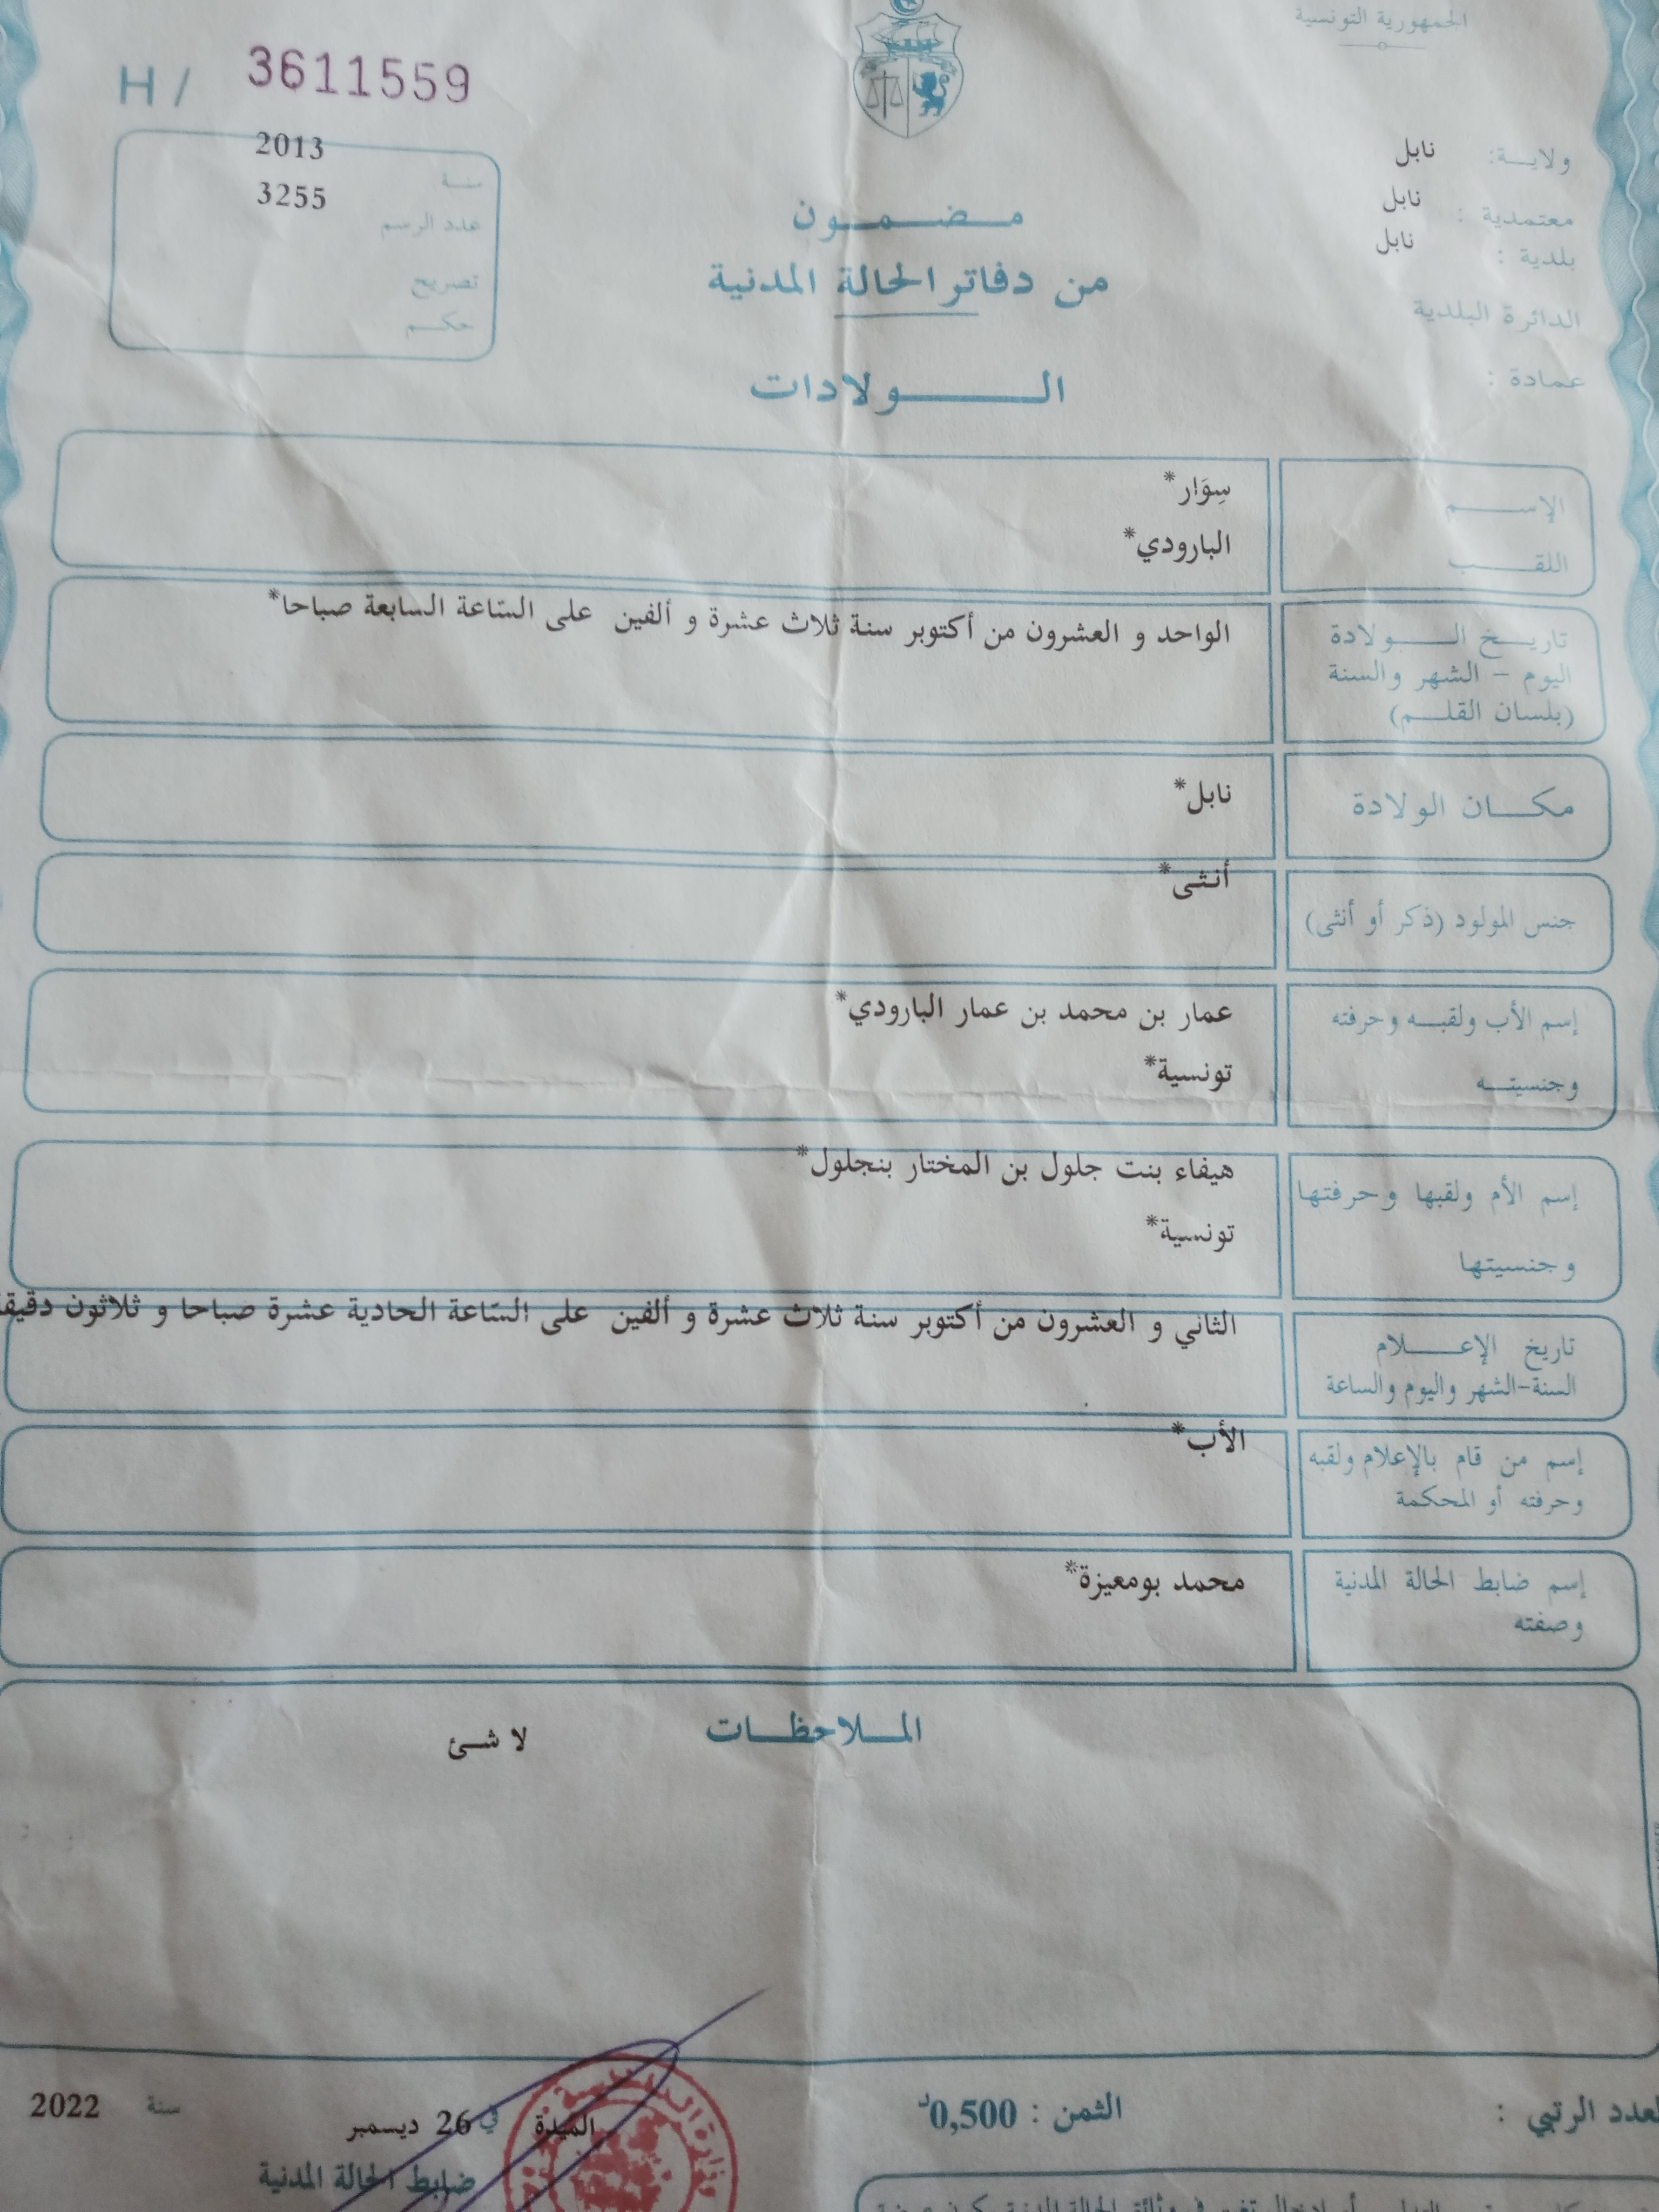 الجمهورية التونسية
H / 3611559
ولايــة: نابل
معتمدية : نابل
بلدية : نابل
الدائرة البلدية
عمادة :
2013 سنـة
3255 عدد الرسم
تصريح
حكـم
مـضـمـون
من دفاتر الحالة المدنية
الـولادات
الإسـم
سِوَار*
اللقـب
البارودي*
تاريـخ الـولادة
اليوم – الشهر والسنة
(بلسان القلـم)
الواحد و العشرون من أكتوبر سنة ثلاث عشرة و ألفين على السّاعة السابعة صباحا*
مكـان الولادة
نابل*
جنس المولود (ذكر أو أنثى)
أنثى*
إسم الأب ولقبـه وحرفته
عمار بن محمد بن عمار البارودي*
وجنسيتـه
تونسية*
إسم الأم ولقبها وحرفتها
هيفاء بنت جلول بن المختار بنجلول*
وجنسيتها
تونسية*
تاريخ الإعـلام
السنة-الشهر واليوم والساعة
الثاني و العشرون من أكتوبر سنة ثلاث عشرة و ألفين على السّاعة الحادية عشرة صباحا و ثلاثون
إسم من قام بالإعلام ولقبه
وحرفته أو المحكمة
الأب*
إسم ضابط الحالة المدنية
وصفته
محمد بومعيزة*
المـلاحظـات
لا شئ
العدد الرتبي :
الثمن : 0,500د
الميدة في 26 ديسمبر سنة 2022
ضابط الحالة المدنية